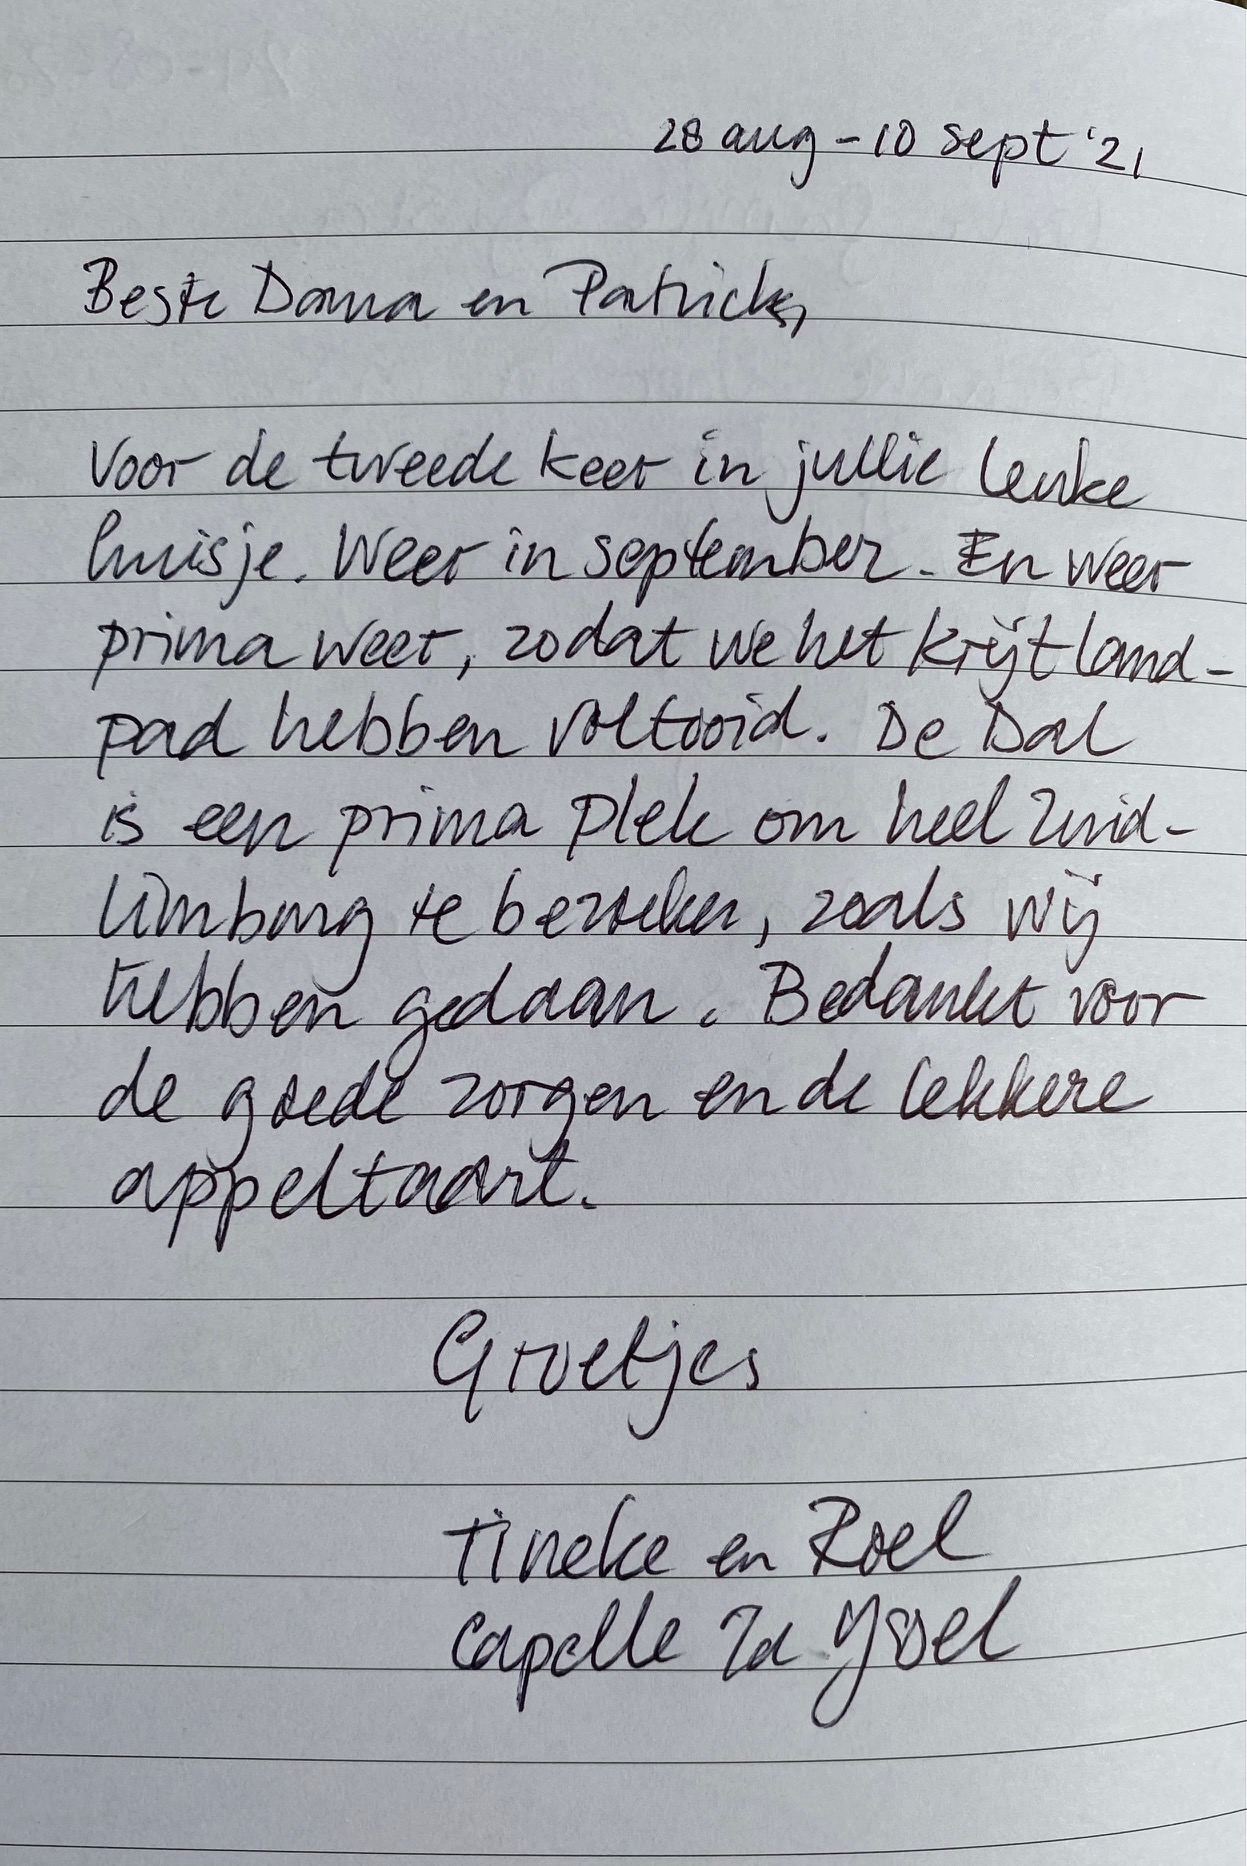 28 aug - 10 sept '21
Beste Danna en Patrick,
Voor de tweede keer in jullie leuke
huisje. Weer in september. En weer
prima weer, zodat we het krijtland-
pad hebben voltooid. De Dal
is een prima plek om heel Zuid-
limburg te bezoeken, zoals wij
hebben gedaan. Bedankt voor
de goede zorgen en de lekkere
appeltaart.
Groetjes
Tineke en Roel
Capelle Id Yssel